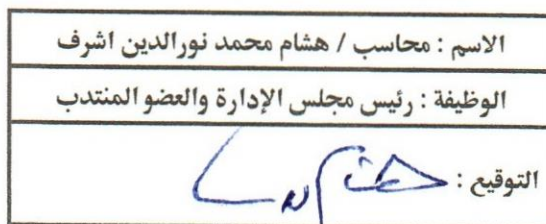 الاسم : محاسب / هشام محمد نورالدين اشرف
الوظيفة : رئيس مجلس الإدارة والعضو المنتدب
التوقيع :